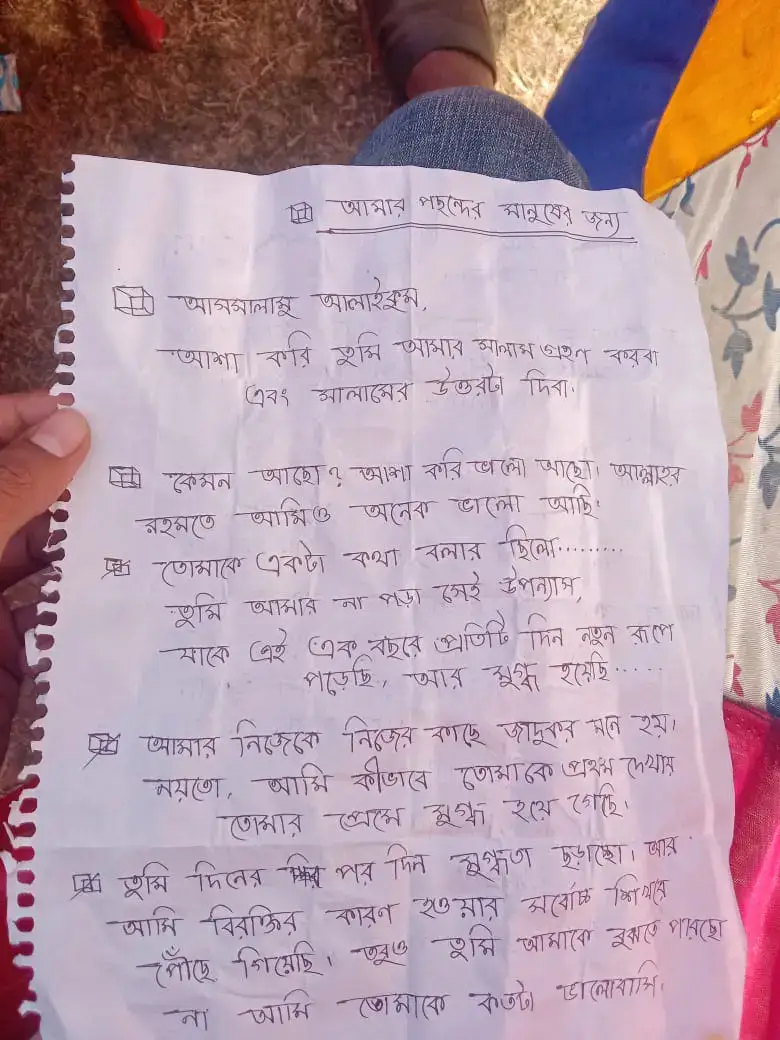 আমার পছন্দের মানুষের জন্য
আসসালামু আলাইকুম,
আশা করি তুমি আমার সালাম গ্রহণ করবা
এবং সালামের উত্তরটা দিবা.
কেমন আছো? আশা করি ভালো আছো। আল্লাহর
রহমতে আমিও অনেক ভালো আছি.
তোমাকে একটা কথা বলার ছিলো.........
তুমি আমার না পড়া সেই উপন্যাস,
যাকে এই এক বছরে প্রতিটি দিন নতুন রূপে
পড়েছি, আর মুগ্ধ হয়েছি......
আমার নিজেকে নিজের কাছে জাদুকর মনে হয়।
নয়তো, আমি কীভাবে তোমাকে প্রথম দেখায়
তোমার প্রেমে মুগ্ধ হয়ে গেছি.
তুমি দিনের পর দিন মুগ্ধতা ছড়াচ্ছো। আর
আমি বিরক্তির কারণ হওয়ার সর্বোচ্চ শিখরে
পৌঁছে গিয়েছি। তবুও তুমি আমাকে বুঝতে পারছো
না আমি তোমাকে কতটা ভালোবাসি.